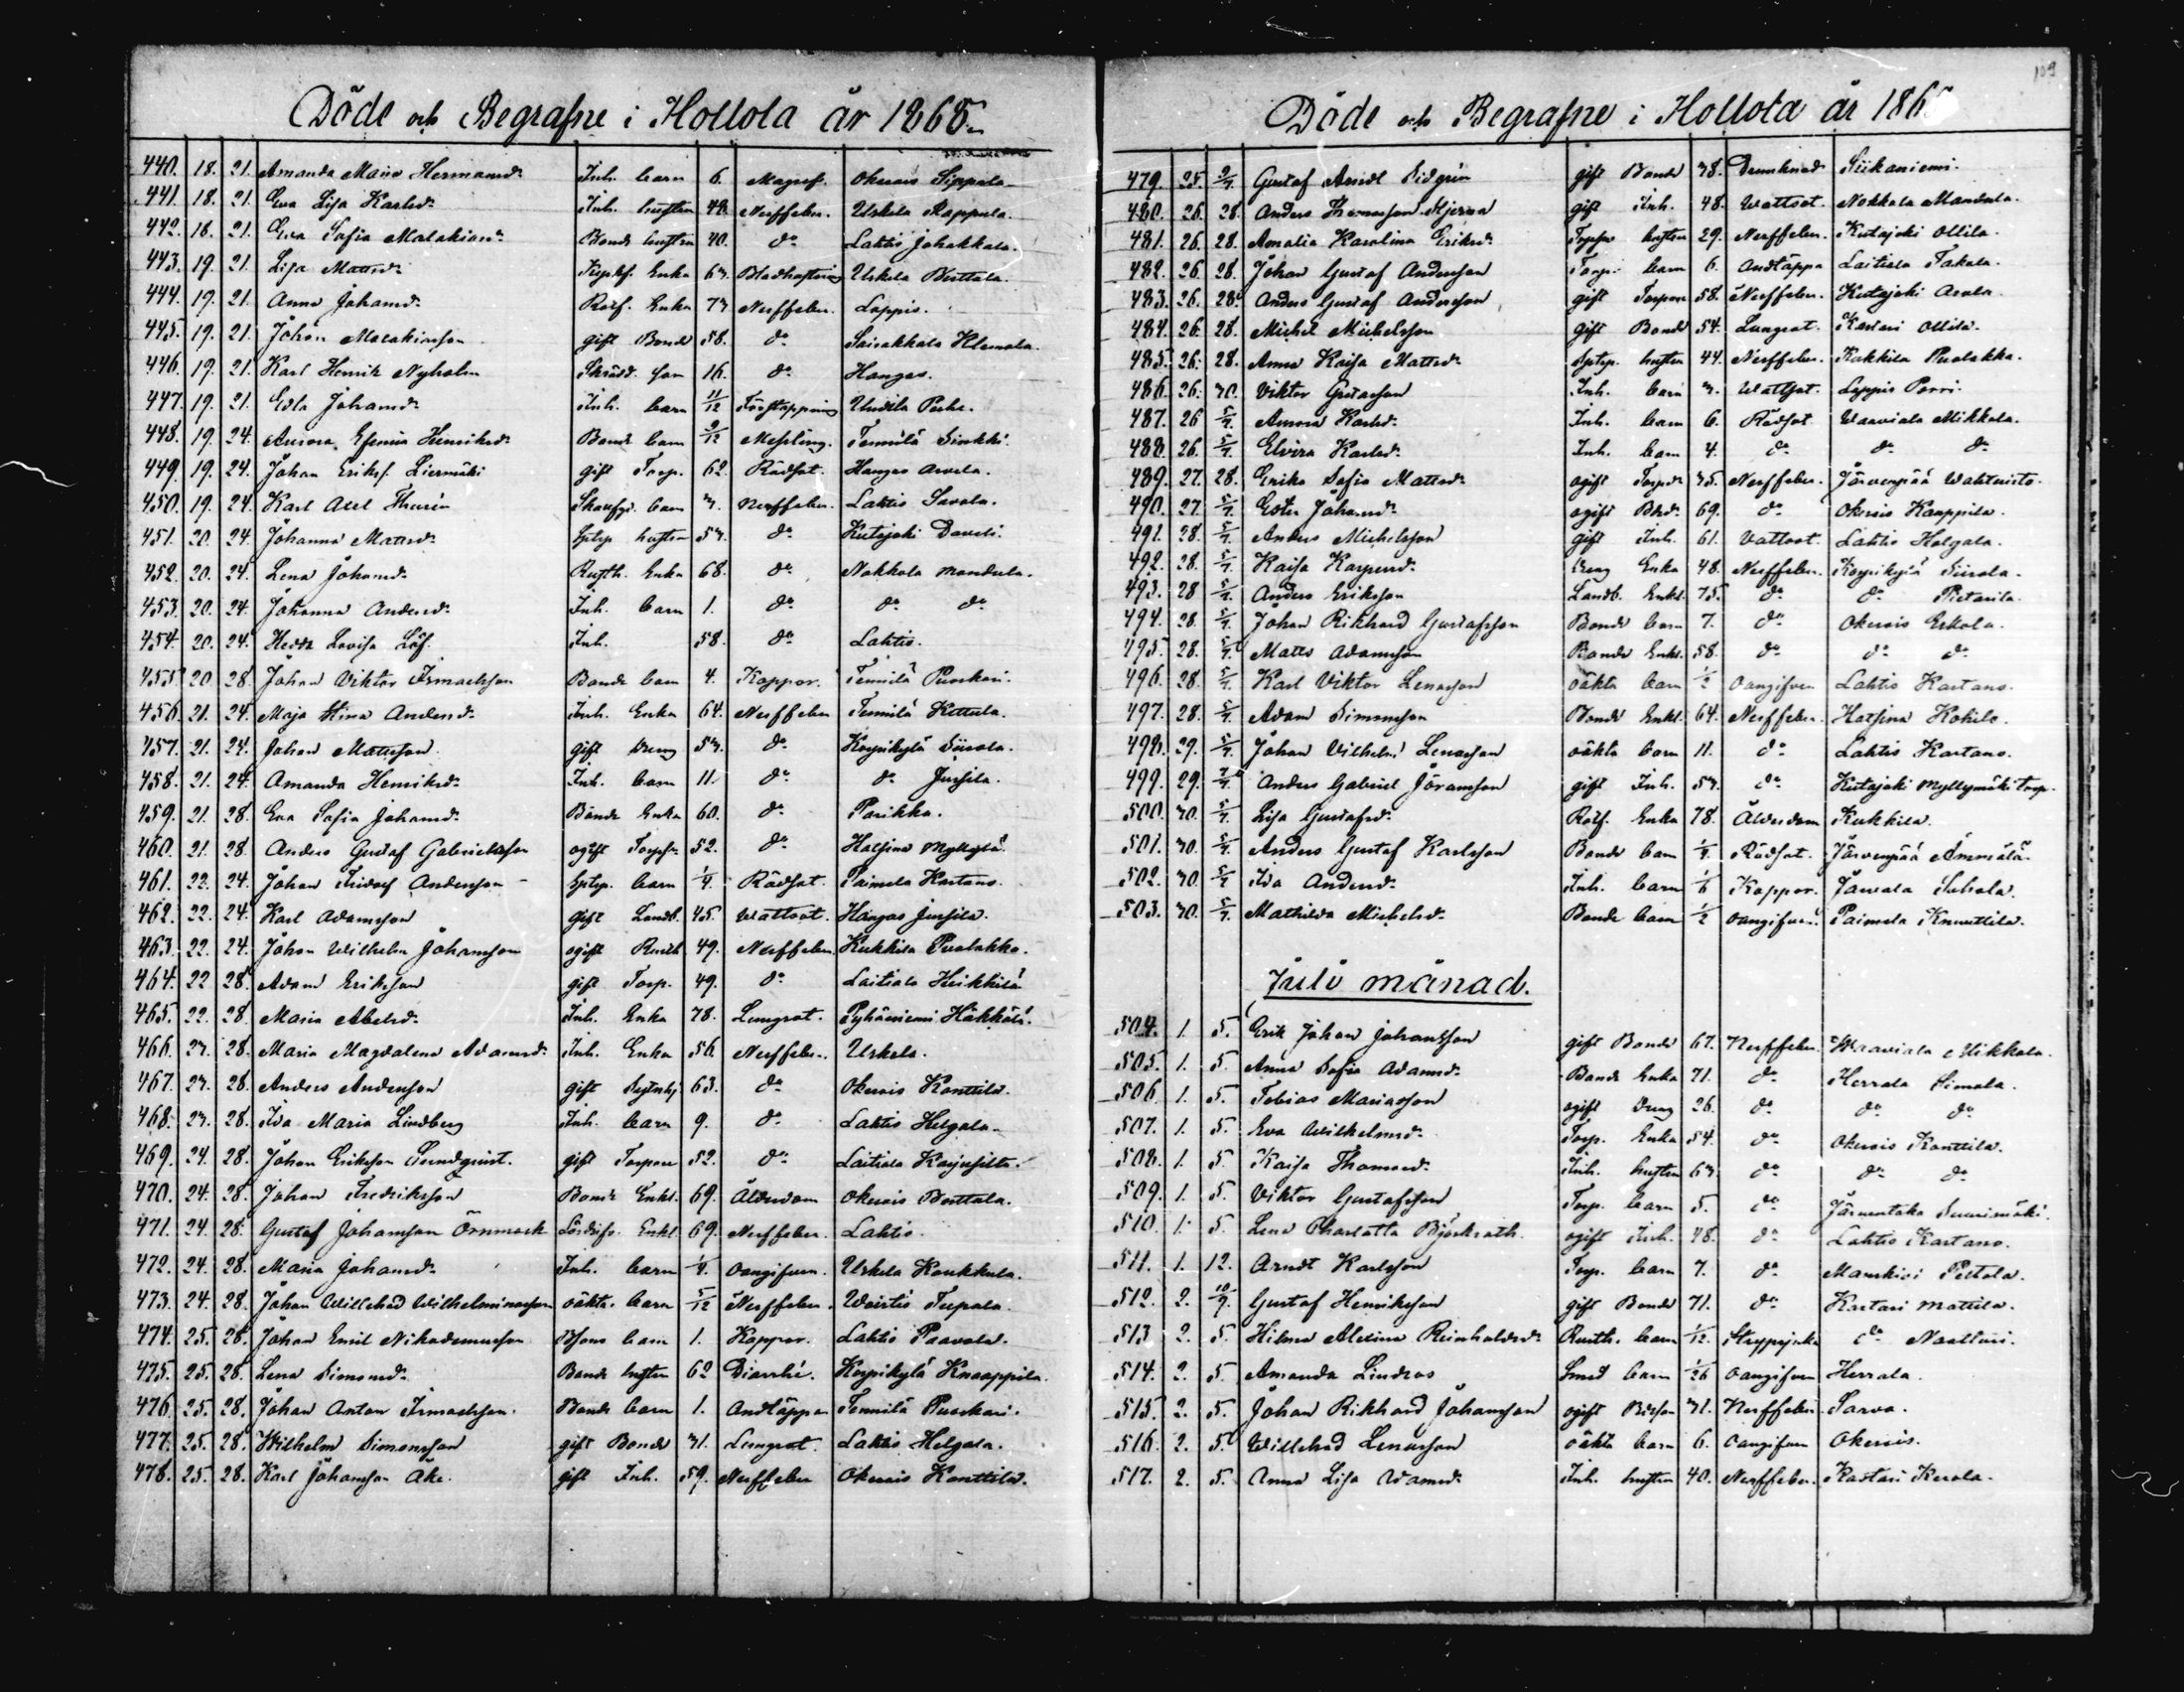 Döde och Begrafne i Hollola år 1865.
440. 18. 21. Amanda Maria Hermansdr Inh. barn 6. Magref. Okerois Sippola
441. 18. 21. Eva Lisa Karlsdr Inh. hustru 48. Nerffeber. Urkela Kappula.
442. 18. 21. Eva Sofia Malakiasdr Bonde hustru 40. do Lahtis Johakkala.
443. 19. 21. Lisa Mattsdr Enka 63. Urkela Perttala.
444. 19. 21. Anna Johansdr Rotf. Enka 73 Nerffeber. Loppis.
445. 19. 21. Johan Malakiasson gift Bonde 58. do Sairakkala Klemola.
446. 19. 21. Karl Henrik Nyholm Skrädd. son 16. do Hangas.
447. 19. 21. Edla Johansdr Inh. barn 11/12 Uudila
448. 19. 24. Aurora Efemia Henriksdr Bonde barn 9/12 Messling. Tennilä Sinkki.
449. 19. 24. Johan Eriksf. Liermäki gift Torp. 62. Rödsot. Hangas Arvela.
450. 19. 24. Karl Axel Thurén barn 3. Nerffeber. Lahtis Savola.
451. 20. 24. Johanna Mattsdr hustru 53. do Kutajoki Daveli.
452. 20. 24. Lena Johansdr Rusth. Enka 68. do Nokkola Mandula.
453. 20. 24. Johanna Andersdr Inh. barn 1. do do do
454. 20. 24. Hedda Lovisa Löf. Inh. 58. do Lahtis.
455. 20 28. Johan Viktor Ismaelsson Bonde barn 4. Koppor. Tennilä Puoskari.
456. 21. 24. Maja Stina Andersdr Inh. Enka 64. Nerffeber Tennilä Kettula.
457. 21. 24. Johan Mattsson gift Dreng 53. do Korpikylä Siirola.
458. 21. 24. Amanda Henriksdr Inh. barn 11. do do Jussila.
459. 21. 28. Eva Sofia Johansdr Bonde Enka 60. do Parikka.
460. 21. 28. Anders Gustaf Gabrielsson ogift 52. do Hatsina Myllylä.
461. 22. 24. Johan Fridolf Andersson barn 1/4. Rödsot. Paimela Kartano.
462. 22. 24. Karl Adamsson gift Landb. 45. Wattsot. Hangas Jussila.
463. 22. 24. Johan Wilhelm Johansson ogift Rusth 49. Nerffeber. Kukkila Puolakka.
464. 22 28. Adam Eriksson gift Torp. 49. do Laitiala Heikkilä
465. 22. 28. Maria Abelsdr Inh. Enka 78. Lungsot. Pyhäniemi Häkkölä.
466. 23. 28. Maria Magdalena Adamsdr Inh. Enka 56. Nerffeber. Urkela.
467. 23. 28. Anders Andersson gift 63. do Okerois Konttila.
468. 23. 28. Ida Maria Lindberg Inh. barn 9. do Lahtis Helgala.
469. 24. 28. Johan Eriksson Sundqvist. gift Torpare 52. do Laitiala Karjusilta.
470. 24. 28. Johan Fredriksson Bonde Enkl. 69. Ålderdom Okerois Perttala.
471. 24. 28. Gustaf Johansson Örnmark Enkl 69. Nerffeber. Lahtis.
472. 24. 28. Maria Johansdr Inh. barn 1/4. oangifven. Urkela Koukkula.
473. 24. 28. Johan Willehad Wilhelminasson oäkta. barn 5/12 Nerffeber. Wairtis Tupala.
474. 25. 28. Johan Emil Nikodemusson barn 1. Koppor. Lahtis Paavola.
475. 25. 28. Lena Simonsdr Bonde hustru 62 Diarrhé. Korpikylä Knaappila.
476. 25. 28. Johan Anton Ismaelsson. Bonde barn 1. Andtäppa Tennilä Puoskari.
477. 25. 28. Wilhelm Simonsson gift Bonde 31. Lungsot. Lahtis Helgala.
478. 25. 28. Karl Johansson Åke. gift Inh. 59. Nerffeber Okerois Konttila.
109
Döde och Begrafne i Hollola år 186
479. 25. 2/7. Gustaf Arvidt Sidgrén gift Bonde 38. Drunknad Siikaniemi.
480. 26. 28. Anders Thomasson Stjerna gift Inh. 48. Wattsot. Nokkola Mandola.
481. 26. 28. Amalia Karolina Eriksdr hustru 29. Nerffeber. Kutajoki Ollila.
482. 26. 28. Johan Gustaf Andersson Torp. barn 6. Andtäppa Laitiala Takala.
483. 26. 28. Anders Gustaf Andersson gift Torpare 58. Nerffeber. Kutajoki Arola.
484. 26. 28. Michel Michelsson gift Bonde 54. Lungsot. Kastari Ollila.
485. 26. 28. Anna Kaisa Mattsdr hustru 44. Nerffeber. Kukkila Puolakka.
486. 26. 30. Viktor Gustafsson Inh. barn 3. Wattsot. Loppis Porri.
487. 26 5/7. Aurora Karlsdr Inh. barn 6. Rödsot Waaviala Mikkola.
488. 26. 5/7. Elvira Karlsdr Inh. barn 4. do do do
489. 27. 28. Erika Sofia Mattsdr ogift 35. Nerffeber. Järvenpää Wahteristo.
490. 27. 5/7. Ester Johansdr ogift 69. do Okerois Kaappila.
491. 28. 5/7. Anders Michelsson gift Inh. 61. Vattsot. Lahtis Helgala.
492. 28. 5/7. Kaisa Kaspersdr Dreng Enka 48. Nerffeber. Korpikylä Siirola.
493. 28 5/7. Anders Eriksson Landb. Enkl. 75. do do Pietarila.
494. 28. 5/7. Johan Rikhard Gustafsson Bonde barn 7. do Okerois Erkola.
495. 28. 5/7. Matts Adamsson Bonde Enkl. 58. do do do
496. 28. 5/7. Karl Viktor Lenasson oäkta barn 1/2 oangifven Lahtis Kartano.
497. 28. 5/7. Adam Simonsson Bonde Enkl. 64. Nerffeber. Hatsina Kokilo.
498. 29. 5/7. Johan Vilhelm Lenasson oäkta barn 11. do Lahtis Kartano.
499. 29. 7/7 Anders Gabriel Jöransson gift Inh. 53. do Kutajoki Myllymäki Torp.
500. 30. 5/7. Lisa Gustafsdr Rotf. Enka 78. Ålderdom Kukkila.
501. 30. 5/7. Anders Gustaf Karlsson Bonde barn 1/4. Rödsot. Järvenpää Ämmälä.
502. 30. 5/7 Ida Andersdr Inh. barn 1/6 Koppor. Jarvala Suhola.
503. 30. 5/7. Mathilda Michelsdr Bonde barn 1/2 oangifven. Paimela Knuuttila.
Juli månad.
504. 1. 5. Erik Johan Johansson gift Bonde 67. Nerffeber. Waaviala Mikkola.
505. 1. 5. Anna Sofia Adamsdr Bonde Enka 71. do Herrala Simola.
506. 1. 5. Tobias Mariasson ogift Dreng 26. do do do
507. 1. 5. Eva Wilhelmsdr Torp. Enka 54. do Okerois Konttila.
508. 1. 5. Kaisa Thomasdr Inh. hustru 63. do do do
509. 1. 5. Viktor Gustafsson Torp. barn 5. do Järventaka Suurimäki.
510. 1. 5. Lena Charlotta Björkrath. ogift Inh. 48. do Lahtis Kartano.
511. 1. 12. Arndt Karlsson Torp. barn 7. do Manskivi Peltola.
512. 2. 10/7. Gustaf Henriksson gift Bonde 71. do Kastari Mattila.
513 2. 5. Hilma Alexina Reinholdsdr Rusth. barn 1/12. do Naatturi.
514. 2. 5. Amanda Lindros Smed barn 1/26 oangifven Herrala.
515. 2. 5. Johan Rikhard Johansson ogift 31. Nerffeber. Sarva.
516. 2. 5. Willehad Lenasson oäkta barn 6. oangifven Okerois.
517. 2. 5. Anna Lisa Adamsdr Inh. hustru 40. Nerffeber. Kastari Kerola.